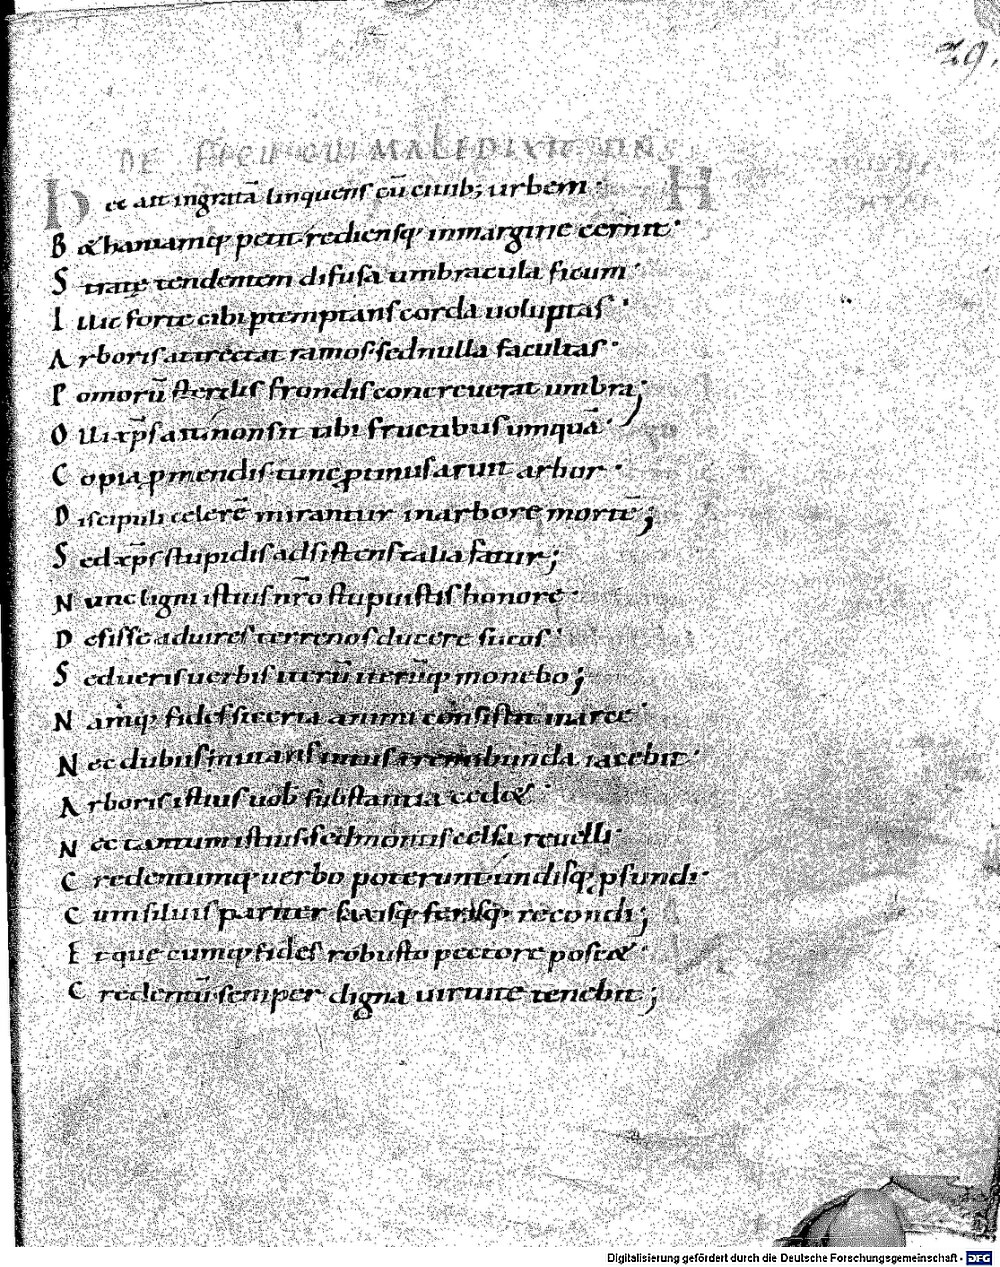 29.
DE FICU QUI MALEDIXIT DNS
Hec ait ingratā linquens cū ciuib; urbem·
B &haniamq; petit· rediensq; inmargine cernit·
S tratę tendentem difusa umbracula ficum·
I lluc forte cibi ptemptans corda uoluptas·
A rboris attrectat ramos· sed nulla facultas·
P omorū sterelis frondis concreuerat umbra;
O lli xp̄s ait· non sit tibi fructibus umquā·
C opia pmendis· tunc ptinus aruit arbor·
D iscipuli celerē mirantur inarbore mortē;
S ed xp̄s stupidis adsistens talia fatur;
N unc ligni istius nr̄o stupuistis honore·
D esisse aduires terrenos ducere sucos·
S ed ueris uerbis iterū iterūq; monebo;
N amq; fides si certa animi consistit inarce·
N ec dubiis inutans tremibunda iacebit·
A rboris istius uob substantia ced&·
N ec tantum istius· sed montis celsa reuelli·
C redentumq; uerbo poterunt· undisq; pfundi·
C um siluis pariter saxisq; ferisq; recondi;
E t quę cumq; fides robusto pectore posc&·
C redentū semper digna uirtute tenebit;
Digitalisierung gefördert durch die Deutsche Forschungsgemeinschaft - DFG